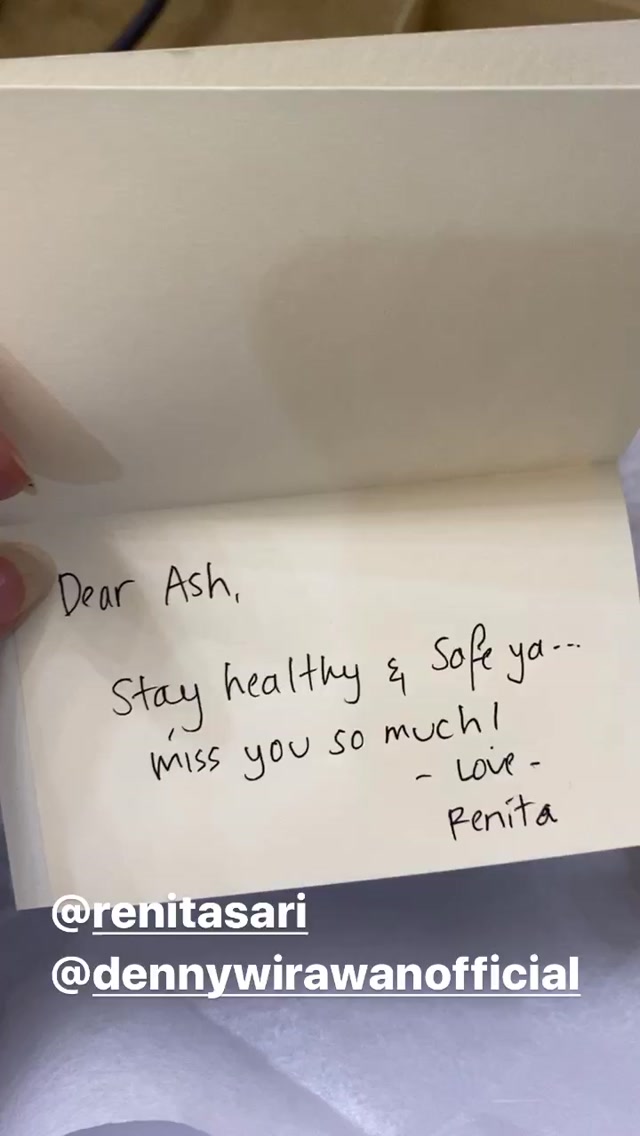 Dear Ash,
Stay healthy & Safe ya...
miss you so much!
- Love -
Renita
@renitasari
@dennywirawanofficial